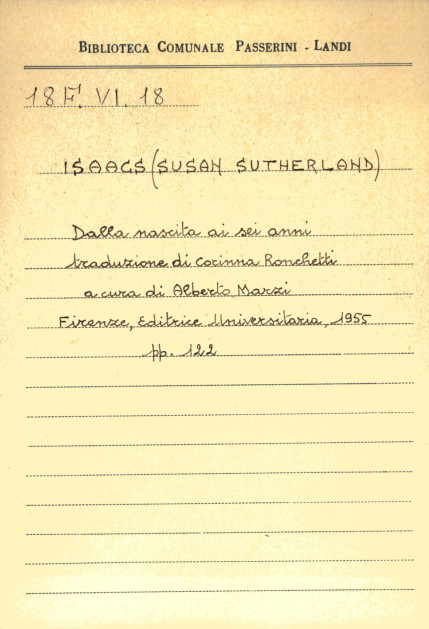 BIBLIOTECA COMUNALE PASSERINI - LANDI
18 F. VI. 18
ISAACS (SUSAN SUTHERLAND)
Dalla nascita ai sei anni
traduzione di Corinna Ronchetti
a cura di Alberto Marzi
Firenze, Editrice Universitaria, 1955
pp. 122